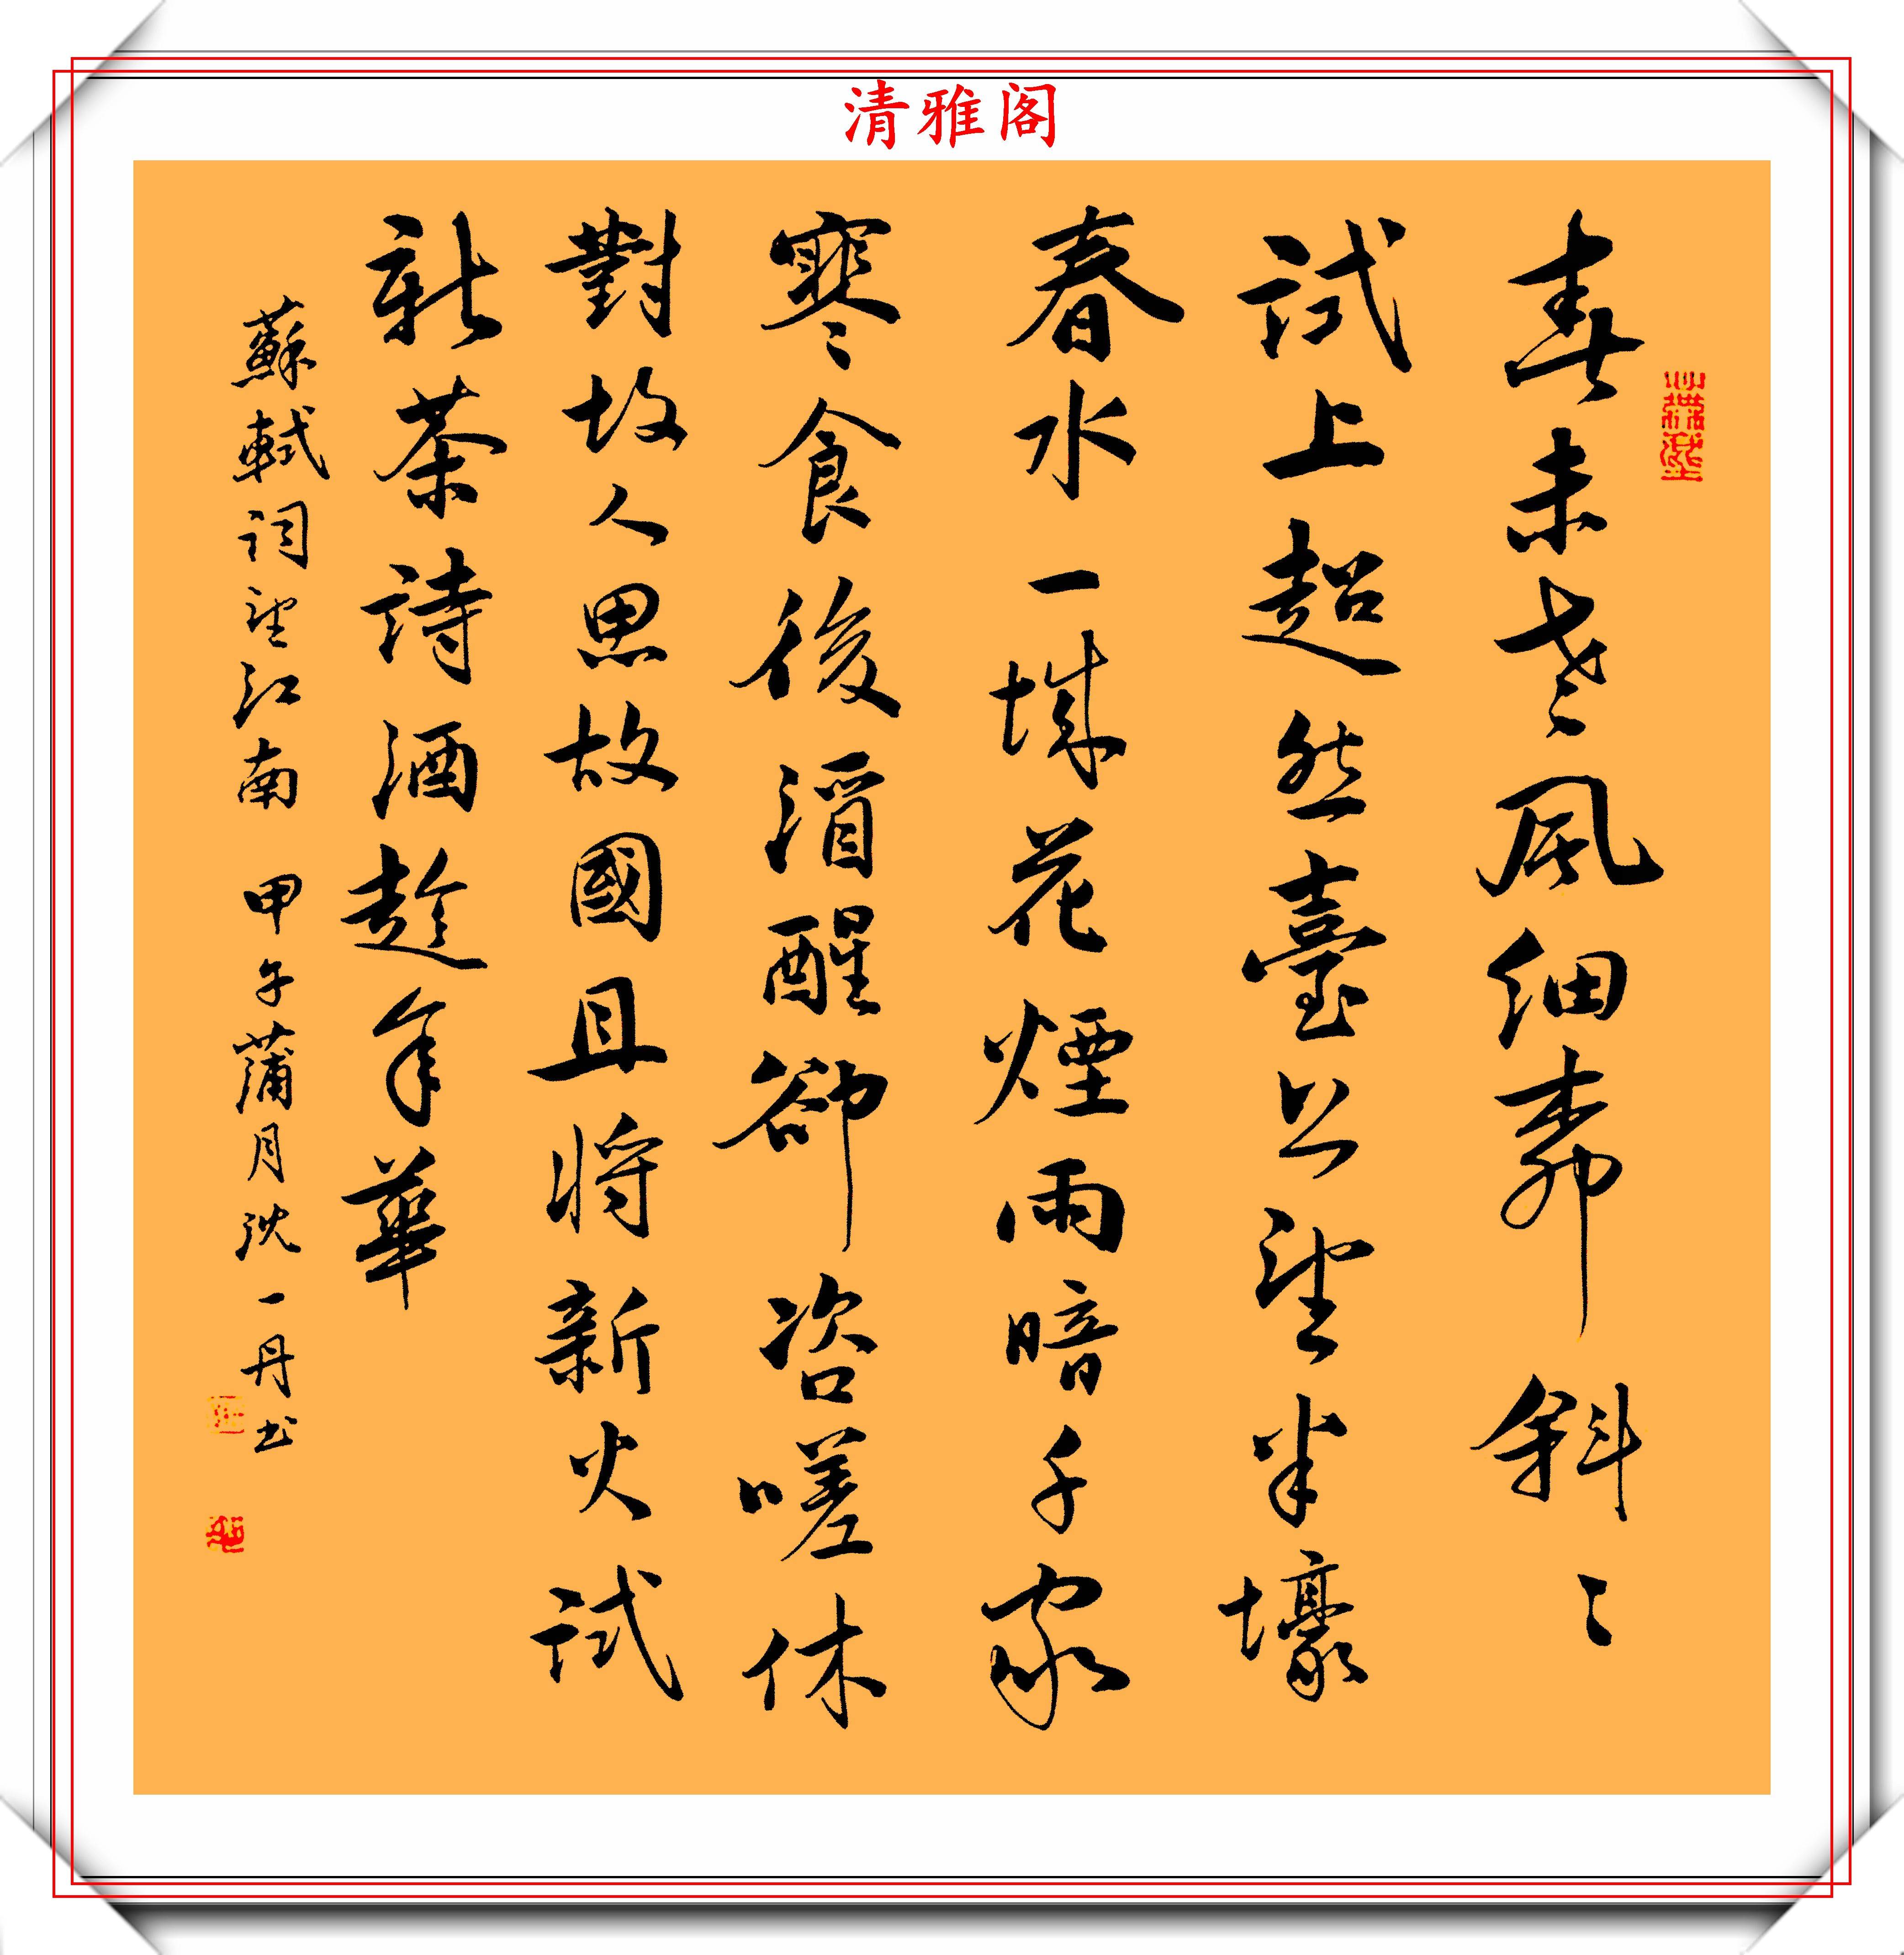 清雅阁
春未老風細柳斜〻
試上超然臺上望半壕
春水一城花煙雨暗千家
寒食後酒醒卻咨嗟休
對故人思故國且將新火試
新茶詩酒趁年華
蘇軾詞望江南 甲午蒲月沈一丹书